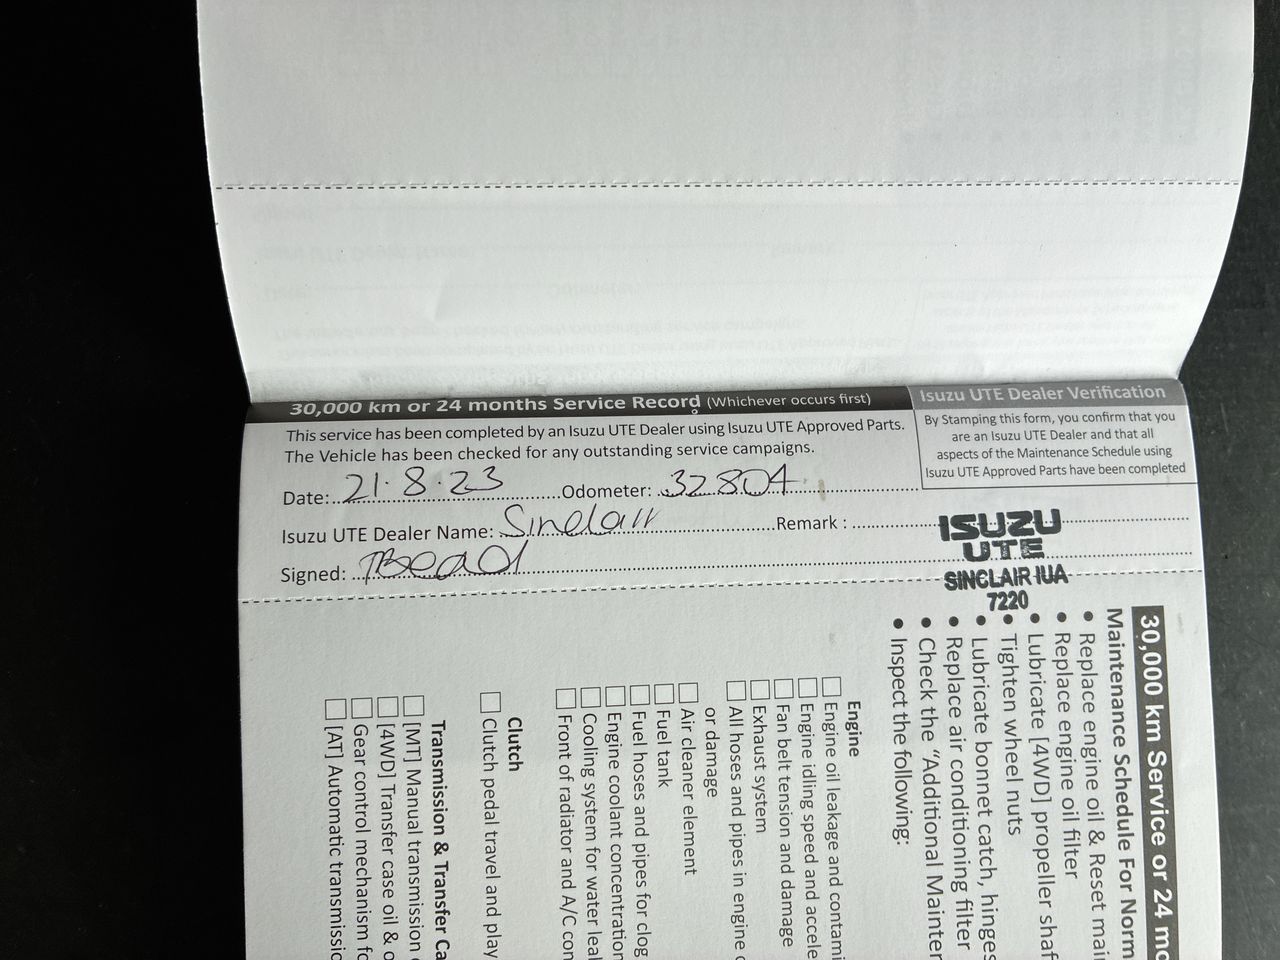 30,000 km or 24 months Service Record (Whichever occurs first)
This service has been completed by an Isuzu UTE Dealer using Isuzu UTE Approved Parts.
The Vehicle has been checked for any outstanding service campaigns.
Date: 21.8.23 Odometer: 32804
Isuzu UTE Dealer Name: Sinclair Remark :
Signed:
Isuzu UTE Dealer Verification
By Stamping this form, you confirm that you
are an Isuzu UTE Dealer and that all
aspects of the Maintenance Schedule using
Isuzu UTE Approved Parts have been completed
ISUZU
UTE
SINCLAIR IUA
7220
30,000 km Service or 24 mo
Maintenance Schedule For Norm
• Replace engine oil & Reset mai
• Replace engine oil filter
• Lubricate [4WD] propeller shaf
• Tighten wheel nuts
• Lubricate bonnet catch, hinges
• Replace air conditioning filter
• Check the “Additional Mainten
• Inspect the following:
Engine
Engine oil leakage and contami
Engine idling speed and accele
Fan belt tension and damage
Exhaust system
All hoses and pipes in engine c
or damage
Air cleaner element
Fuel tank
Fuel hoses and pipes for clog
Engine coolant concentration
Cooling system for water leak
Front of radiator and A/C con
Clutch
Clutch pedal travel and play
Transmission & Transfer Ca
[MT] Manual transmission
[4WD] Transfer case oil &
Gear control mechanism fo
[AT] Automatic transmissio